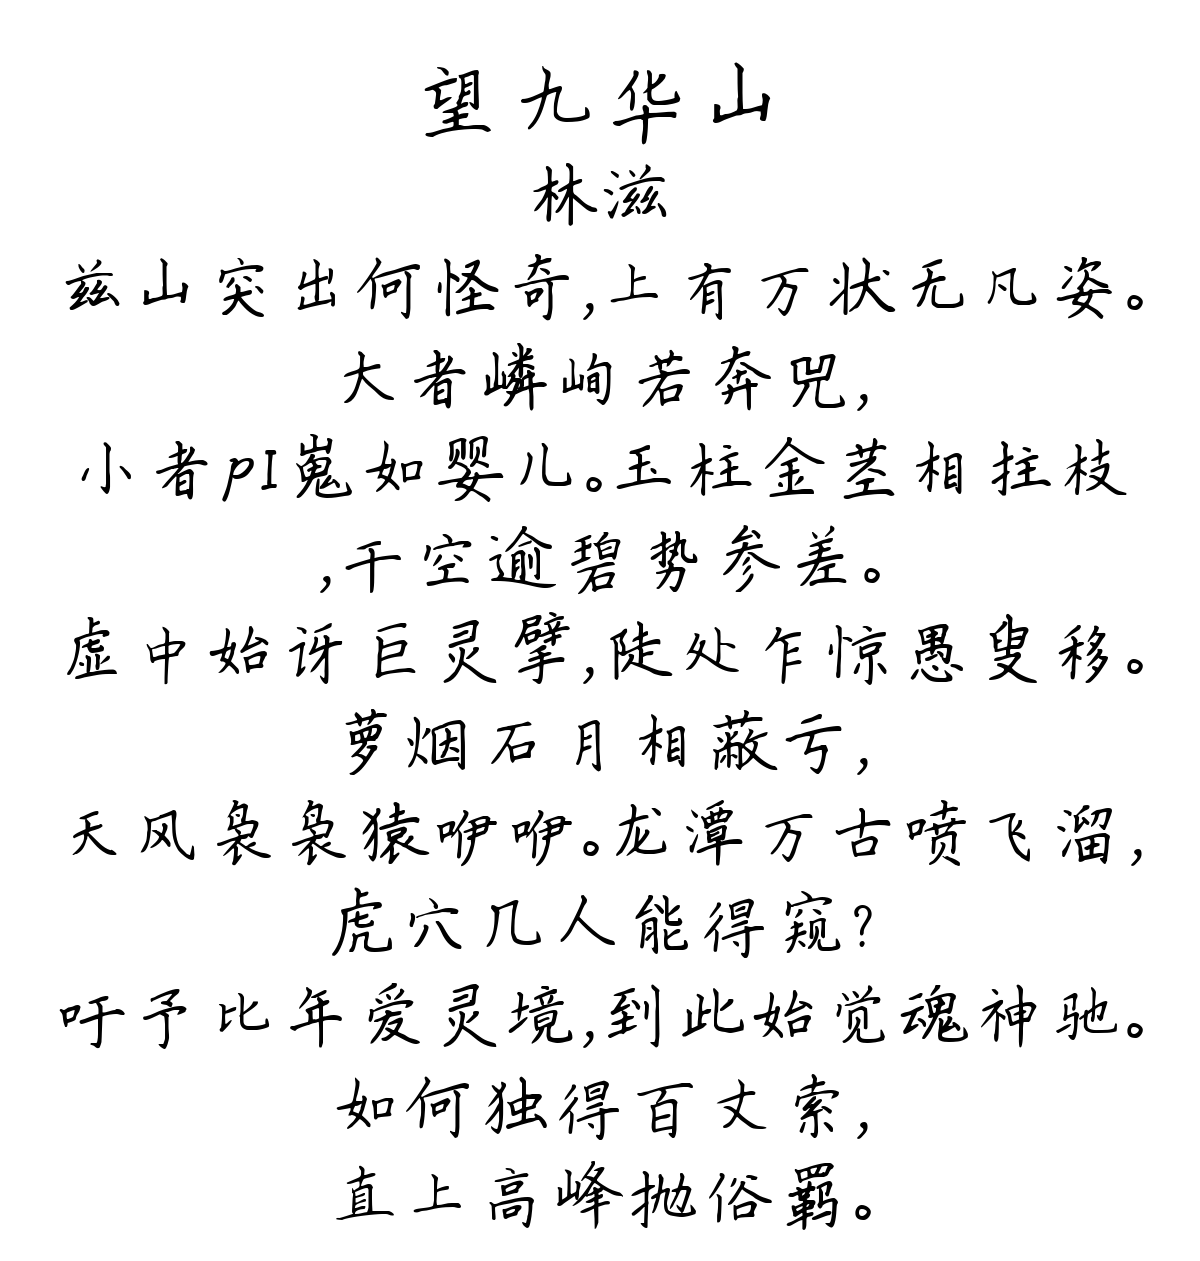 望九华山
林滋
兹山突出何怪奇,上有万状无凡姿。
大者嶙峋若奔兕,
小者pI嵬如婴儿。玉柱金茎相拄枝
,干空逾碧势参差。
虚中始讶巨灵擘,陡处乍惊愚叟移。
萝烟石月相蔽亏,
天风袅袅猿咿咿。龙潭万古喷飞溜,
虎穴几人能得窥?
吁予比年爱灵境,到此始觉魂神驰。
如何独得百丈索,
直上高峰抛俗羁。